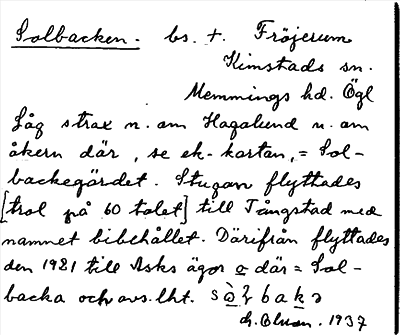 Solbacken. bs. †. Fröjerum
Kimstads sn.
Memmings hd. Ögl
Låg strax n. om Hagalund n. om
åkern där, se ek. kartan, = Sol-
backegärdet. Stugan flyttades
[trol på 60 talet] till Tångstad med
namnet bibehållet. Därifrån flyttades
den 1921 till Asks ägor o där = Sol-
backa och avs. lht.
. 1937